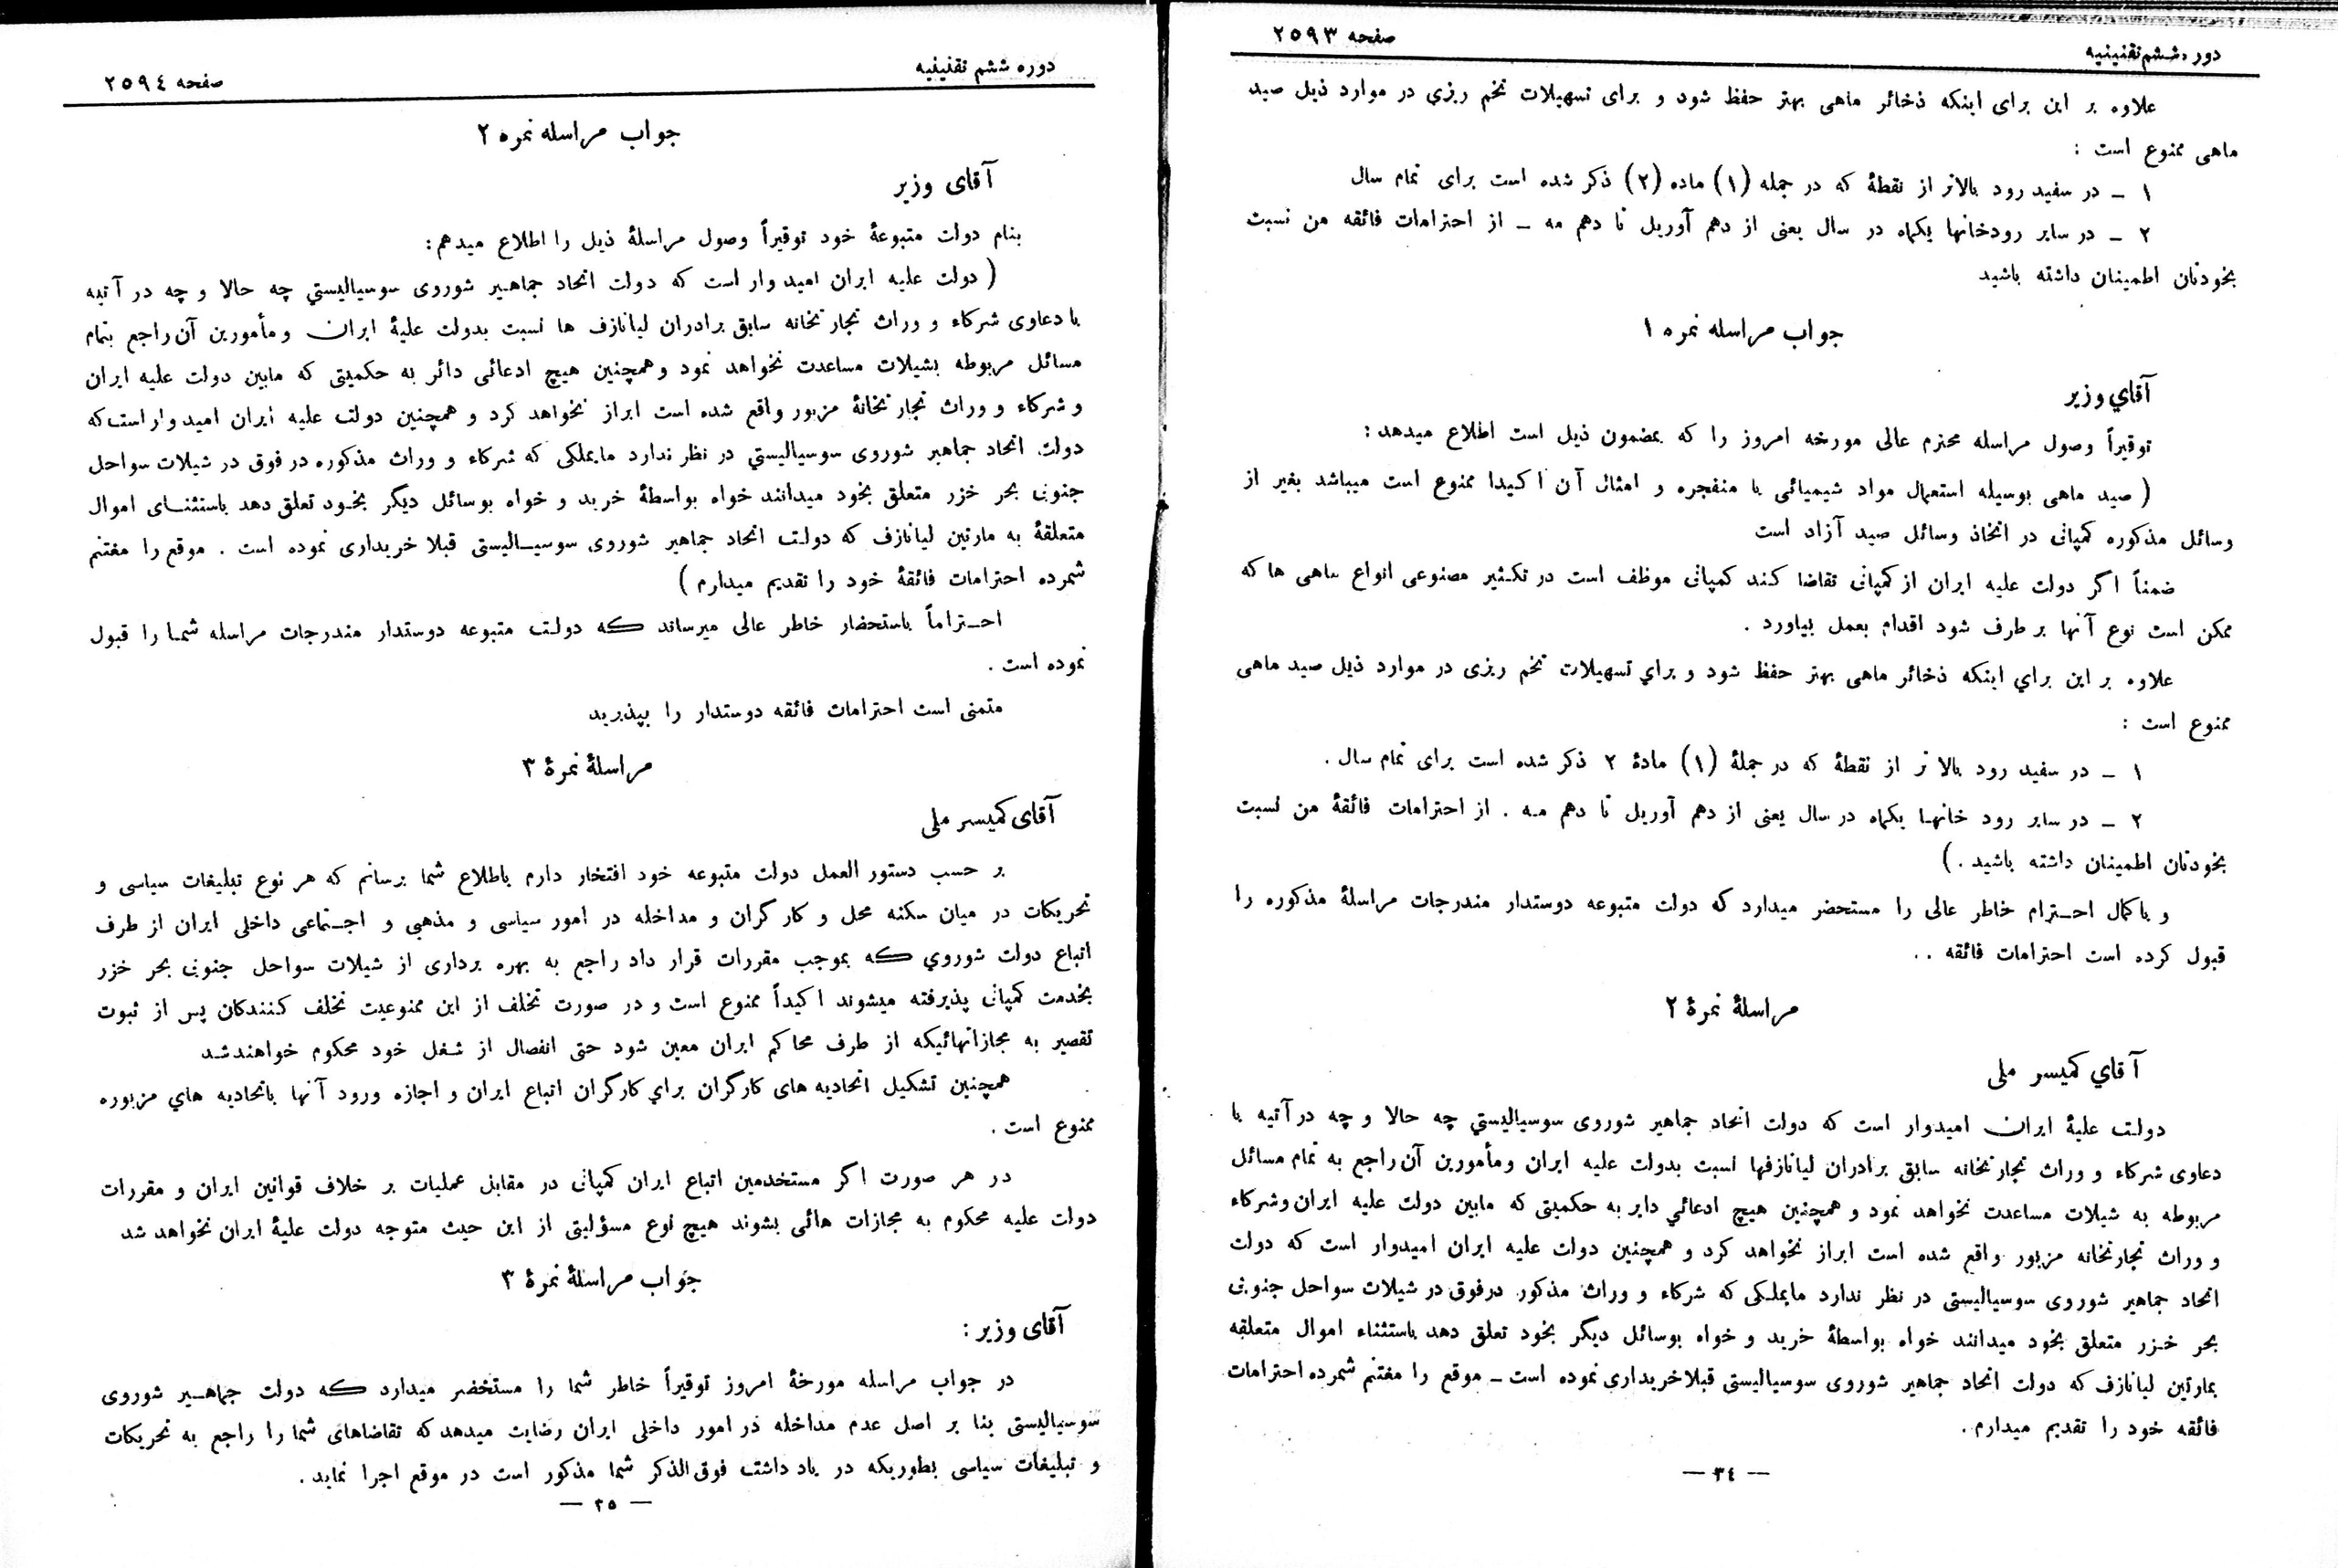 دوره ششم تقنینیه
صفحه ۲۵۹۳
علاوه بر این برای اینکه ذخائر ماهی بهتر حفظ شود و برای تسهیلات تخم ریزی در موارد ذیل صید
ماهی ممنوع است :
۱ ـ در سفید رود بالاتر از نقطۀ که در جمله (۱) ماده (۲) ذکر شده است برای تمام سال
۲ ـ در سایر رودخانها یکماه در سال یعنی از دهم آوریل تا دهم مه ـ از احترامات فائقه من نسبت
بخودتان اطمینان داشته باشید
جواب مراسله نمره ۱
آقاي وزیر
توقیراً وصول مراسله محترم عالی مورخه امروز را که بمضمون ذیل است اطلاع میدهد :
( صید ماهی بوسیله استعمال مواد شیمیائی یا منفجره و امثال آن اکیدا ممنوع است میباشد بغیر از
وسائل مذکوره کمپانی در اتخاذ وسائل صید آزاد است
ضمناً اگر دولت علیه ایران از کمپانی تقاضا کند کمپانی موظف است در تکثیر مصنوعی انواع ماهی ها که
ممکن است نوع آنها بر طرف شود اقدام بعمل بیاورد .
علاوه بر این براي اینکه ذخائر ماهی بهتر حفظ شود و براي تسهیلات تخم ریزی در موارد ذیل صید ماهی
ممنوع است :
۱ ـ در سفید رود بالا تر از نقطۀ که در جملۀ (۱) مادۀ ۲ ذکر شده است برای تمام سال .
۲ ـ در سایر رود خانها یکماه در سال یعنی از دهم آوریل تا دهم مه . از احترامات فائقۀ من نسبت
بخودتان اطمینان داشته باشید . )
و باکمال احترام خاطر عالی را مستحضر میدارد که دولت متبوعه دوستدار مندرجات مراسلۀ مذکوره را
قبول کرده است احترامات فائقه . .
مراسلۀ نمرۀ ۲
آقاي کمیسر ملی
دولت علیۀ ایران امیدوار است که دولت اتحاد جماهیر شوروی سوسیالیستي چه حالا و چه در آتیه با
دعاوی شرکاء و وراث تجارتخانه سابق برادران لیانازفها نسبت بدولت علیه ایران ومأمورین آن راجع به تمام مسائل
مربوطه به شیلات مساعدت نخواهد نمود و همچنین هیچ ادعائي دایر به حکمیتی که مابین دولت علیه ایران وشرکاء
و وراث تجارتخانه مزبور واقع شده است ابراز نخواهد کرد و همچنین دولت علیه ایران امیدوار است که دولت
اتحاد جماهیر شوروی سوسیالیستی در نظر ندارد مایملکی که شرکاء و وراث مذکور درفوق در شیلات سواحل جنوبی
بحر خزر متعلق بخود میدانند خواه بواسطۀ خرید و خواه بوسائل دیگر بخود تعلق دهد باستثناء اموال متعلقه
بمارتین لیانازف که دولت اتحاد جماهیر شوروی سوسیالیستی قبلا خریداری نموده است ـ موقع را مغتنم شمرده احترامات
فائقه خود را تقدیم میدارم .
— ۳٤ —
دوره ششم تقنینیه
صفحه ۲۵۹٤
جواب مراسله نمره ۲
آقای وزیر
بنام دولت متبوعۀ خود توقیراً وصول مراسلۀ ذیل را اطلاع میدهم :
( دولت علیه ایران امید وار است که دولت اتحاد جماهیر شوروی سوسیالیستي چه حالا و چه در آتیه
با دعاوی شرکاء و وراث تجارتخانه سابق برادران لیانازف ها نسبت بدولت علیۀ ایران و مأمورین آن راجع بتمام
مسائل مربوطه بشیلات مساعدت نخواهد نمود و همچنین هیچ ادعائی دائر به حکمیتی که مابین دولت علیه ایران
و شرکاء و وراث تجارتخانۀ مزبور واقع شده است ابراز نخواهد کرد و همچنین دولت علیه ایران امید وار است که
دولت اتحاد جماهیر شوروی سوسیالیستي در نظر ندارد مایملکی که شرکاء و وراث مذکوره در فوق در شیلات سواحل
جنوبی بحر خزر متعلق بخود میدانند خواه بواسطۀ خرید و خواه بوسائل دیگر بخود تعلق دهد باستثنای اموال
متعلقۀ به مارتین لیانازف که دولت اتحاد جماهیر شوروی سوسیالیستی قبلا خریداری نموده است . موقع را مغتنم
شمرده احترامات فائقۀ خود را تقدیم میدارم )
احتراماً باستحضار خاطر عالی میرساند که دولت متبوعه دوستدار مندرجات مراسله شما را قبول
نموده است .
متمنی است احترامات فائقه دوستدار را بپذیرید
مراسلۀ نمرۀ ۳
آقای کمیسر ملی
بر حسب دستور العمل دولت متبوعه خود افتخار دارم باطلاع شما برسانم که هر نوع تبلیغات سیاسی و
تحریکات در میان سکنه محل و کارگران و مداخله در امور سیاسی و مذهبی و اجتماعی داخلی ایران از طرف
اتباع دولت شوروي که بموجب مقررات قرار داد راجع به بهره برداری از شیلات سواحل جنوبی بحر خزر
بخدمت کمپانی پذیرفته میشوند اکیداً ممنوع است و در صورت تخلف از این ممنوعیت تخلف کنندگان پس از ثبوت
تقصیر به مجازاتهائیکه از طرف محاکم ایران معین شود حتی انفصال از شغل خود محکوم خواهندشد
همچنین تشکیل اتحادیه های کارگران براي کارگران اتباع ایران و اجازه ورود آنها باتحادیه هاي مزبوره
ممنوع است .
در هر صورت اگر مستخدمین اتباع ایران کمپانی در مقابل عملیات بر خلاف قوانین ایران و مقررات
دولت علیه محکوم به مجازات هائی بشوند هیچ نوع مسؤلیتی از این حیث متوجه دولت علیۀ ایران نخواهد شد
جواب مراسلۀ نمرۀ ۳
آقای وزیر :
در جواب مراسله مورخۀ امروز توقیراً خاطر شما را مستحضر میدارد که دولت جماهیر شوروی
سوسیالیستی بنا بر اصل عدم مداخله در امور داخلی ایران رضایت میدهد که تقاضاهای شما را راجع به تحریکات
و تبلیغات سیاسی بطوریکه در یاد داشت فوق الذکر شما مذکور است در موقع اجرا نماید .
— ۳۵ —